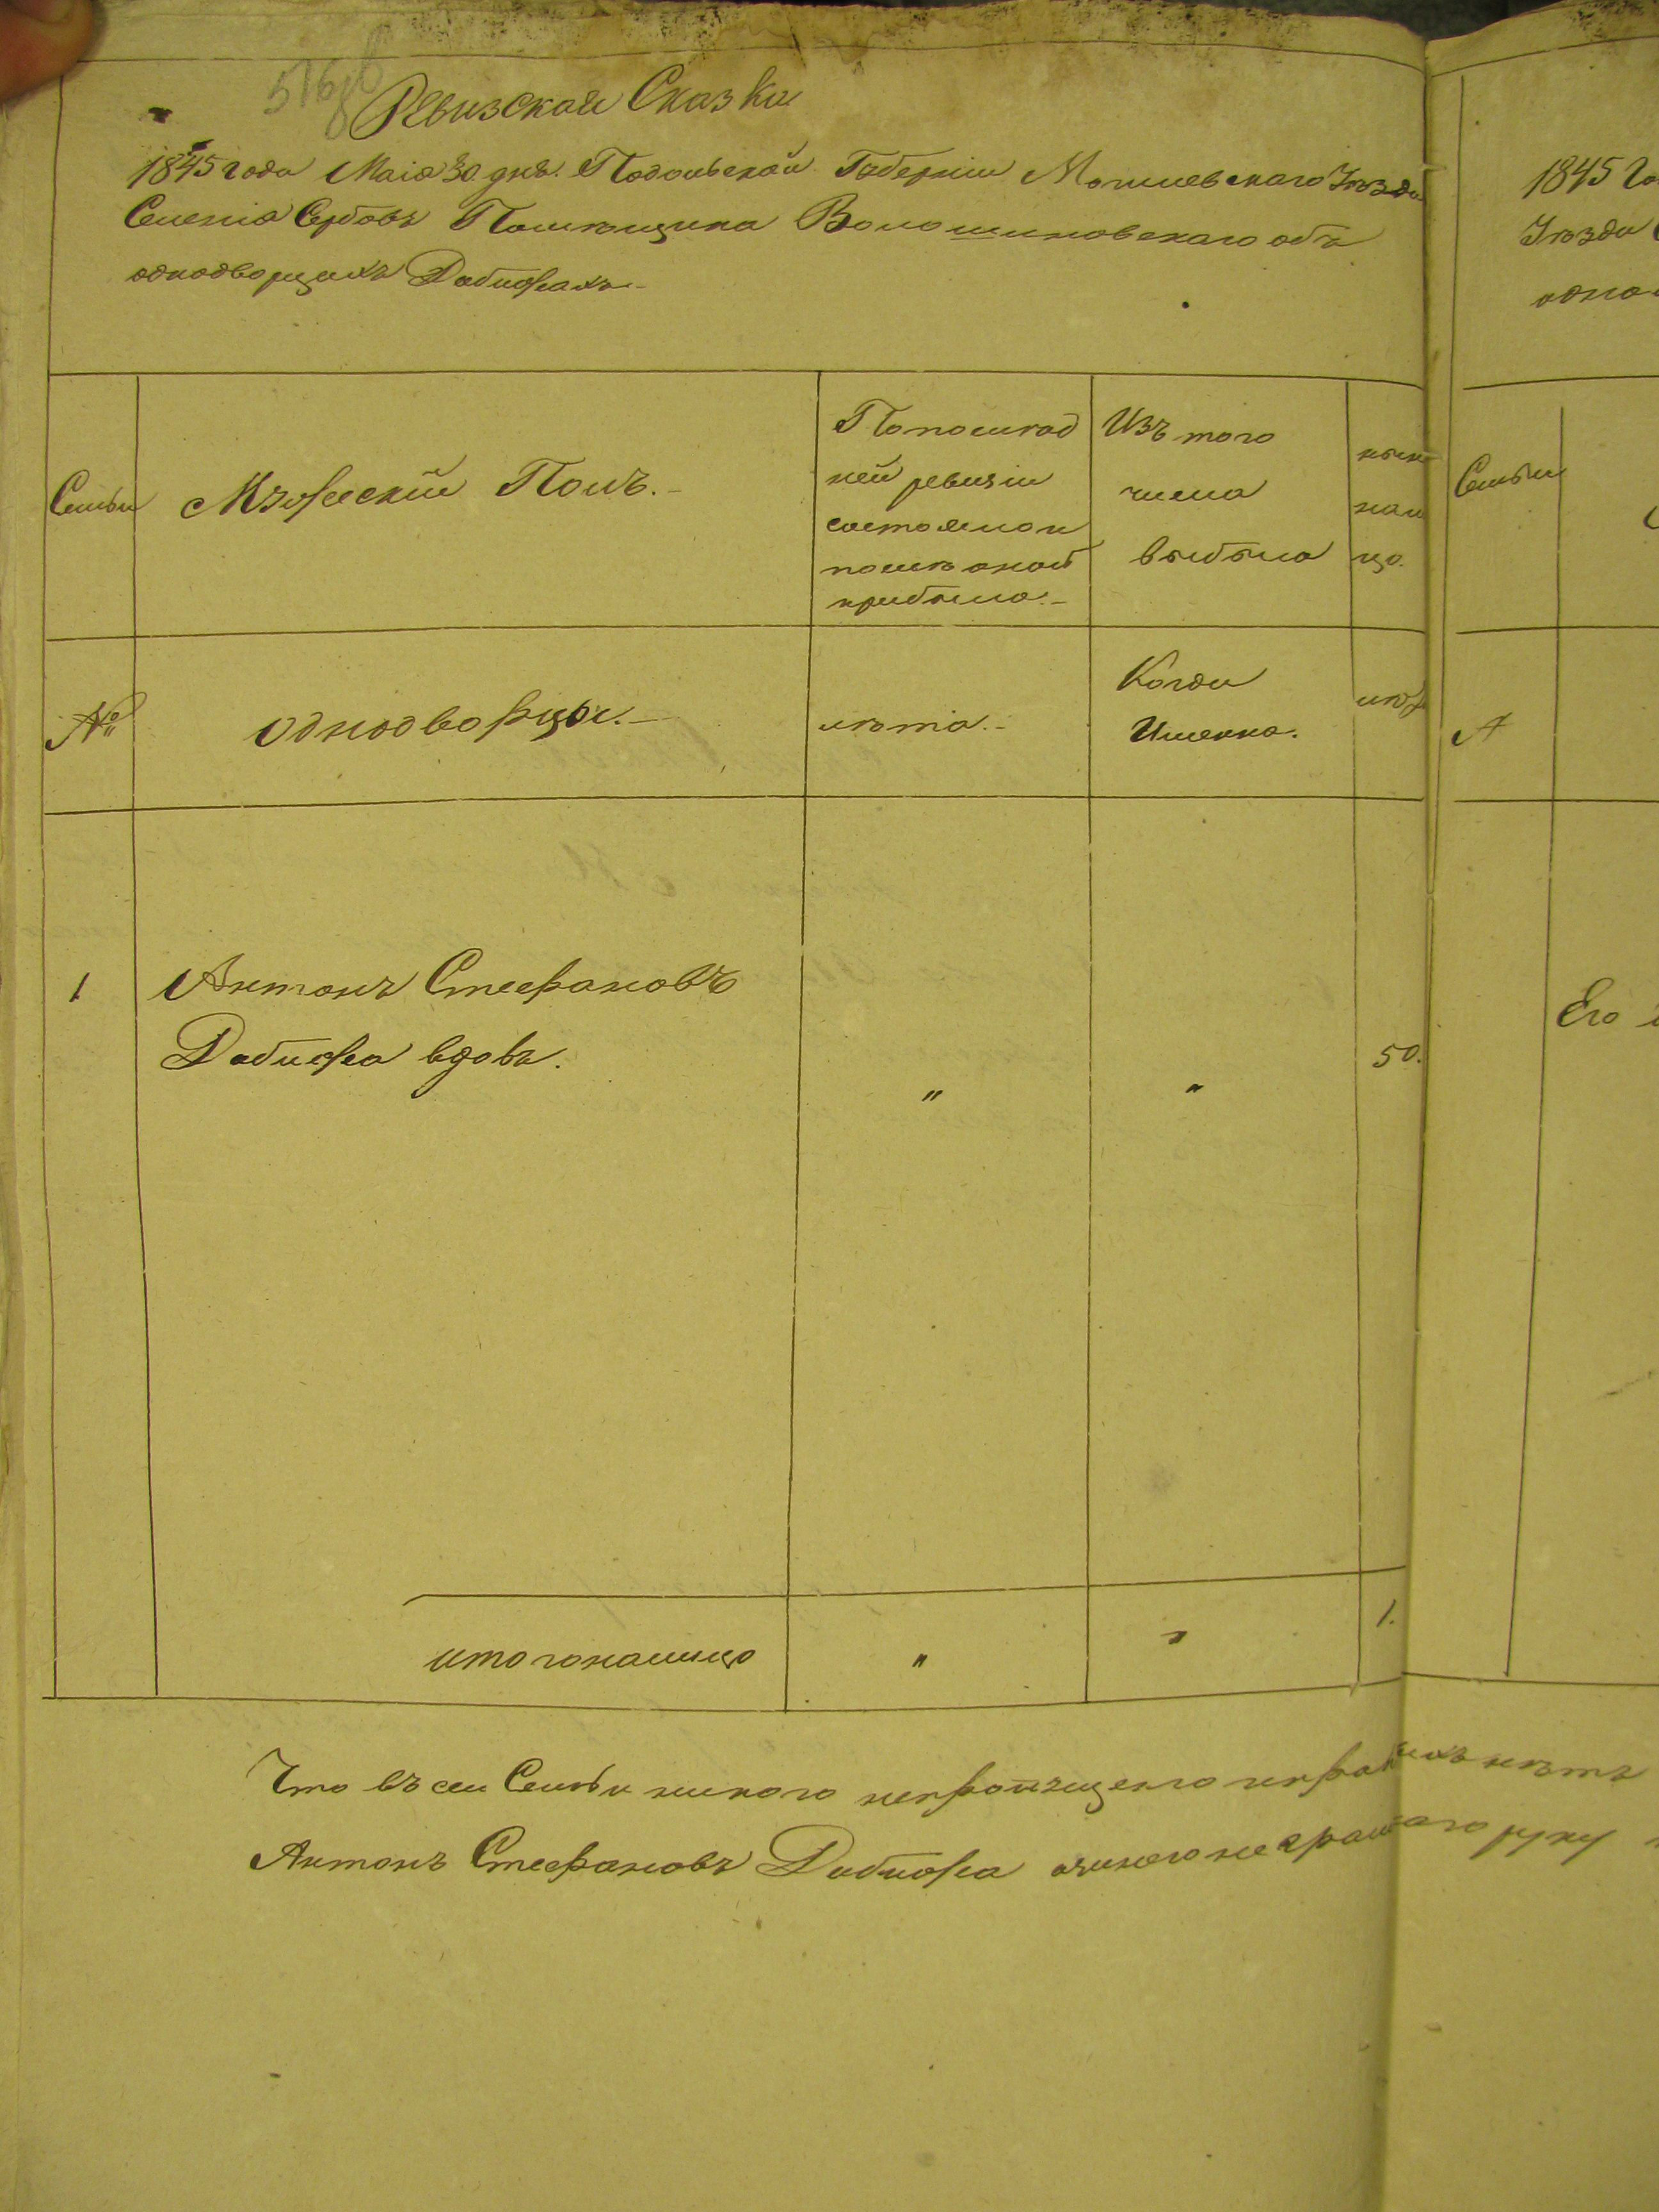 576 об
Ревизская Сказка
1845 года Маія 30 дня. Подольской Губерніи Могилевскаго Уѣзда
Селенія Сербовъ Помѣщика Волошиновскаго объ
однодворцахъ Дабижахъ
Семьи
Мужескій Полъ.
По послѣд
ней ревизіи
состояло и
послѣ оной
прибыло.
Изъ того
числа
выбыло
нын
нали
цо.
№
однодворцы.
лѣта.
Когда
Именно.
лѣт
1
Антонъ Стефановъ
Дабижа вдовъ.
"
"
50.
итого налицо
"
"
1.
Что въ сей Семьи никого непропущенно
Антонъ Стефановъ Дабижа руку
1845 Го
Уѣзда С
одно
Семьи
Его